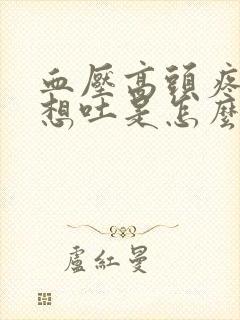 血壓高頭疼
想吐是怎麼
盧紅曼